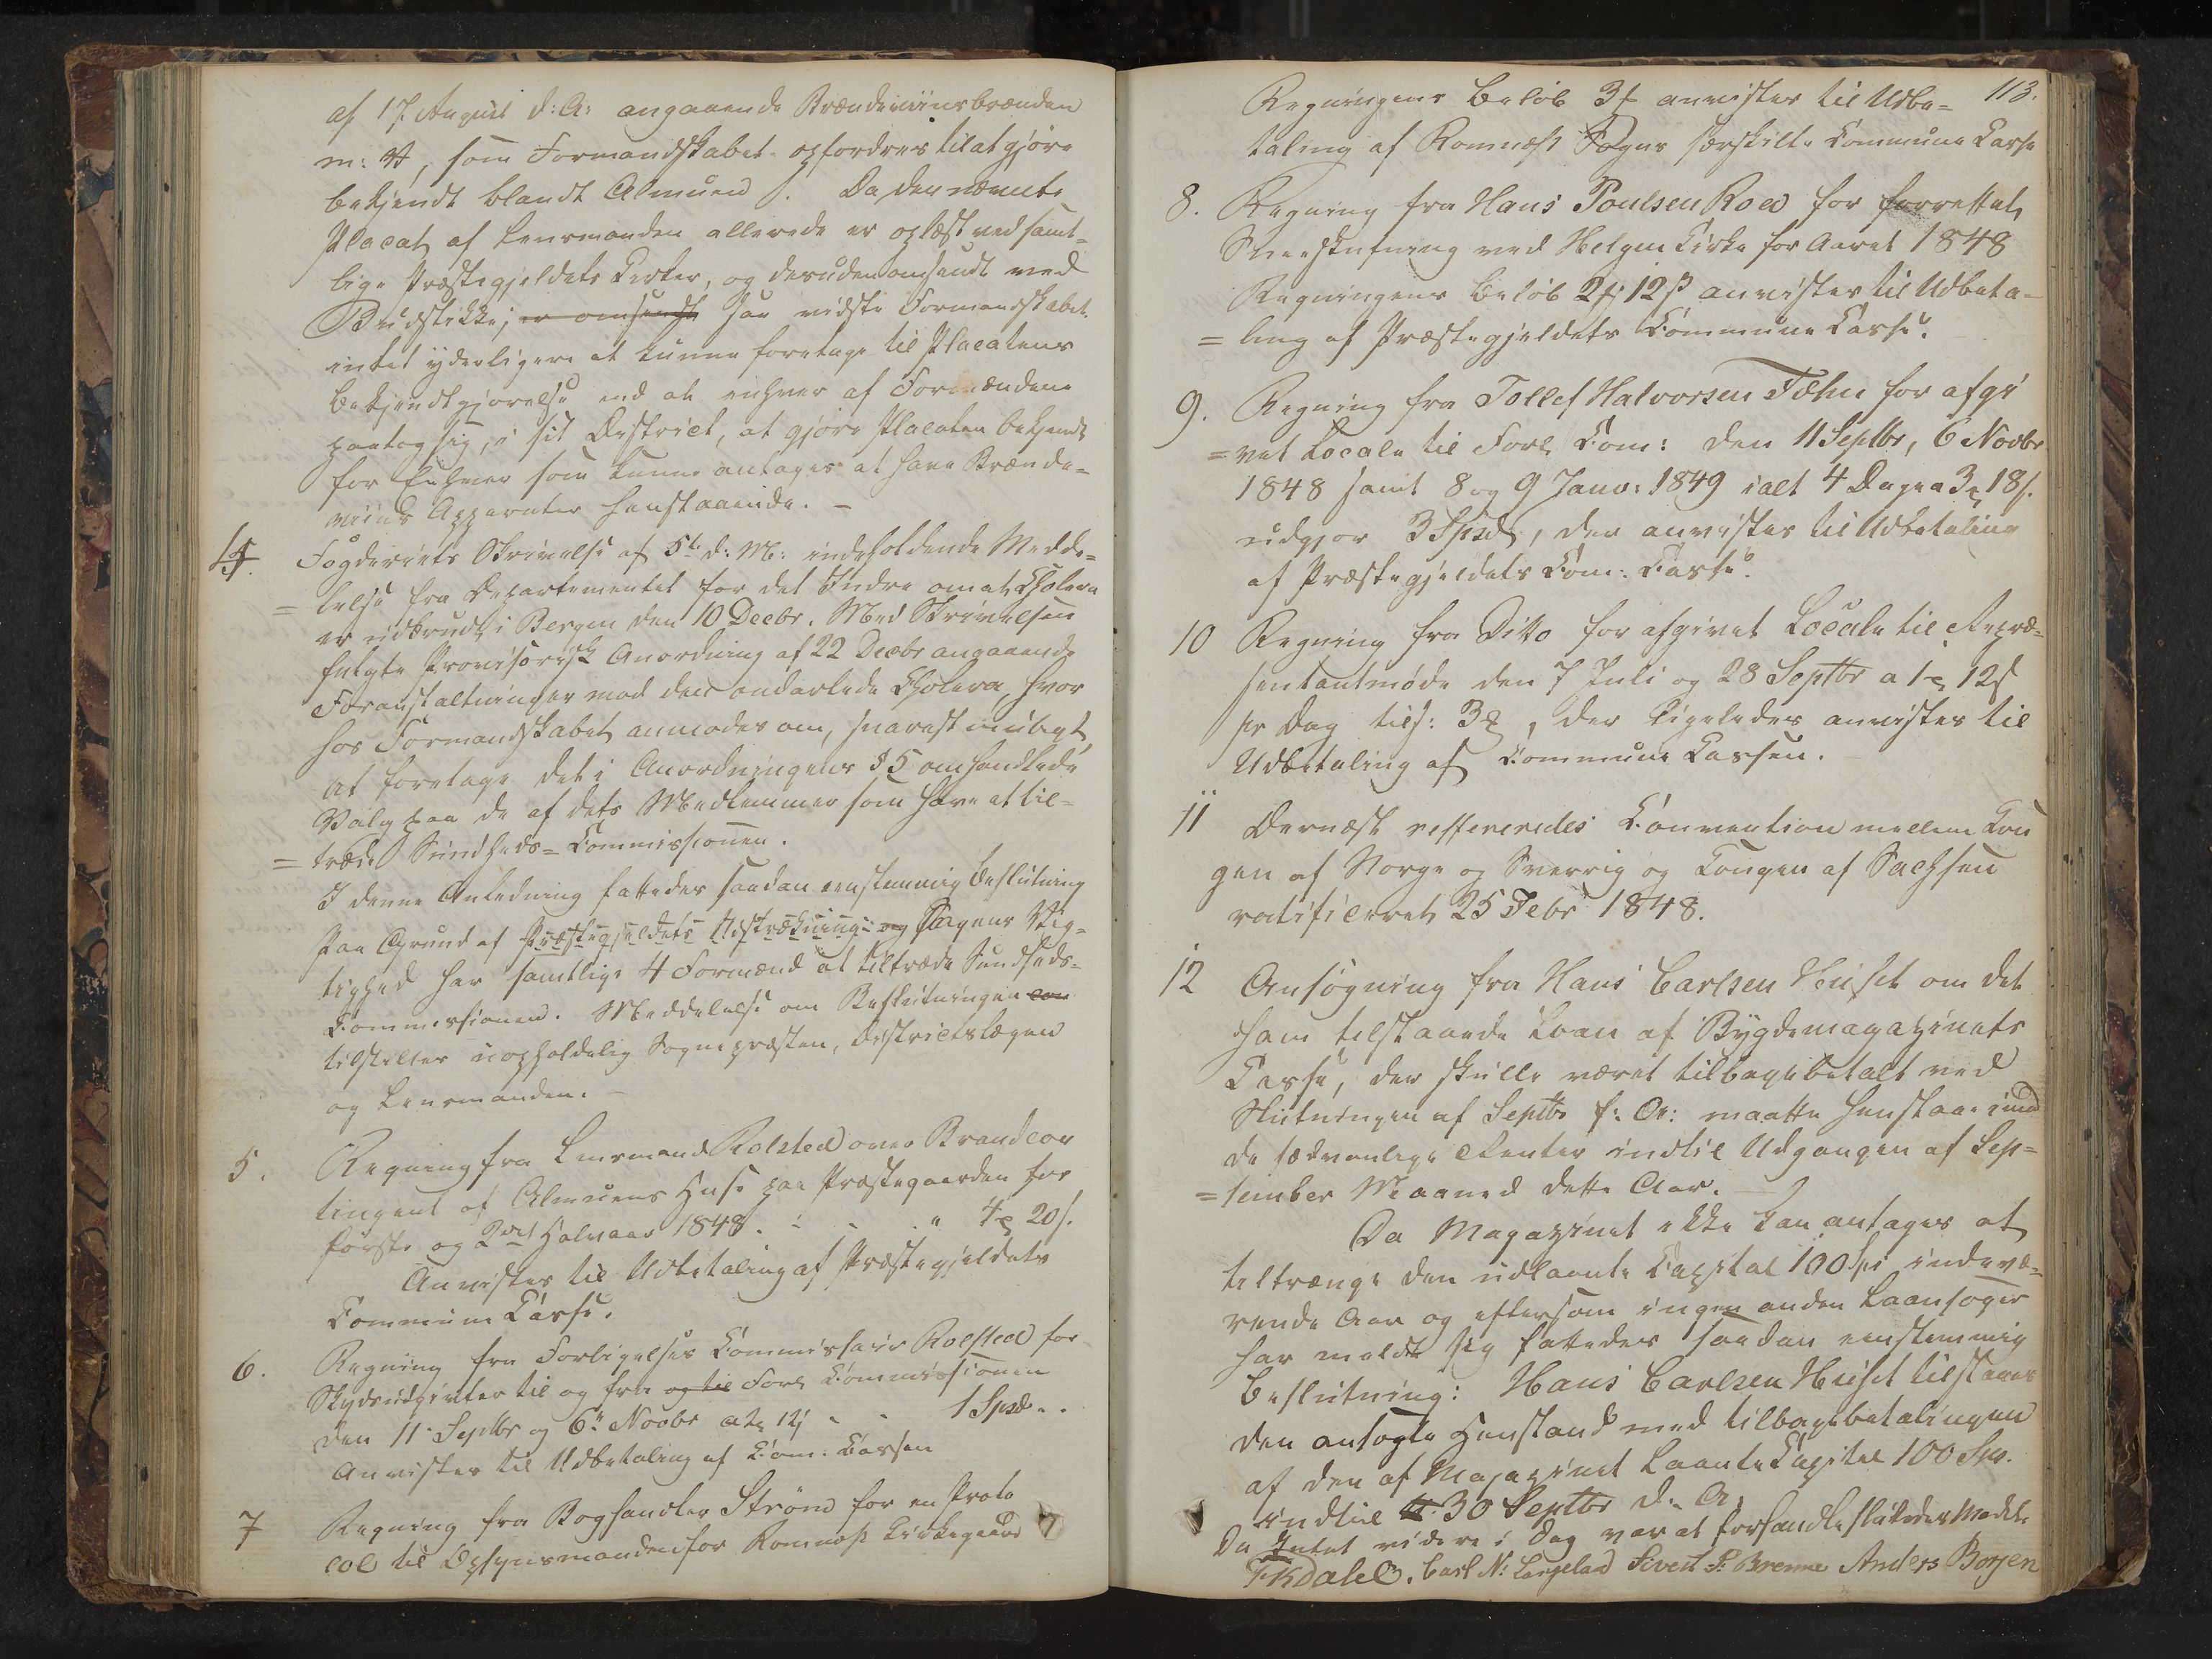 af 17 August d: A: angaaende Brændeviinsbrænden
m: V, som Formandskabet opfordres til at gjøre
bekjendt blandt Almuen. Da den nævnte
Placat af Lensmanden allerede er oplæst ved samt-
lige Præstegjeldets Kirker, og desuden omsendt ved
Budstikke; er omsendt saa vidste Formandskabet
intet yderligere at kunne foretage til Placatens
Bekjendtgjørelse end at enhver af Formændene
paatog sig, i sit District, at gjøre Placaten bekjendt
for Enhver som kunne antages at have Brænde-
viins Apparater henstaaende. -
4. Fogderiets Skrivelse af 5te d: M: indeholdende Medde-
= lelse fra Departementet for det Indre om at Cholera
er udbrudt i Bergen den 10 Decbr. Med Skrivelsen
fulgte Provisorisk Anordning af 22 Decbr angaaende
Foranstaltninger mod den ondartede Cholera, hvor
hos Formandskabet anmodes om, snarest muligt,
at foretage det i Anordningens § 5 omhandlede
Valg paa de af dets Medlemmer som have at til-
= træde Sundheds-Commissionen.
I denne Anledning fattedes saadan eenstemmig Beslutning
Paa Grund af Præstegjeldets Udstrækning og Sagens Vig-
tighed har samtlige 4 Formænd at tiltræde Sundheds-
Commissionen. Meddelelse om Beslutningen
tilstilles uopholdelig Sognepræsten, Districtslægen
og Lensmanden. -
5. Regning fra Lensmand Rolsted over Brandcon
tingent af Almuens Huse paa Præstegaarden for
første og 2det Halvaar 1848. - - " 4 20 s.
Anvistes til Udbetaling af Præstegjeldets
Commune Casse.
6. Regning fra Forligelses Commissair Rolsted for
Skydsudgivter til og fra og til Forl. Commissionen
den 11 Septbr og 6te Novbr a - - 1 Spd. -
Anvistes til Udbetaling af Com: Cassen
7 Regning fra Boghandler Strøm for en Proto
col til Opsynsmanden for Romnæs Kirkegaard
113.
Regningens Beløb 3 anvistes til Udbe-
taling af Romnæs Sogns særskilte Commune Casse
8. Regning fra Hans Poulsen Roed for forrettet
Sneeskufning ved Helgen Kirke for Aaret 1848
Regningens Beløb 2 12 ß anvistes til Udbeta-
= ling af Præstegjeldets Commune Casse.
9. Regning fra Tollef Halvorsen Tæhn for afgi
= vet Locale til Forl. Com: den 11 Septbr, 6 Novbr
1848 samt 8 og 9 Janv: 1849 ialt 4 Dage a 3 18 s.
udgjør 3 Spd, der anvistes til Udbetaling
af Præstegjeldets Com: Casse.
10 Regning fra Dito for afgivet Locale til Repræ-
sentantmøde den 7 Juli og 28 Septbr a 1 12 s
pr Dag tils: 3, der ligeledes anvistes til
Udbetaling af Commune Cassen.
11 Dernæst reffereredes Convention mellem Kon
gen af Norge og Sverrig og Kongen af Sachsen
ratificeret 25 Febr 1848.
12 Ansøgning fra Hans Carlsen Huset om det
ham tilstaaede Laan af Bygdemagazinets
Casse, der skulle været tilbagebetalt ved
Slutningen af Septbr f: A: maatte henstaae imod
de sædvanlige Renter indtil Udgangen af Sep-
= tember Maaned dette Aar.
Da Magazinet ikke kan antages at
tiltrænge den udlaante Capital 100 Sp indevæ-
rende Aar og eftersom ingen anden Laansøger
har meldt sig fattedes saadan eenstemmig
Beslutning: Hans Carlsen Huset tilstaaes
den ansøgte Henstand med Tilbagebetalingen
af den af Magazinet laante Capital 100 Spd.
indtil 30 Septbr d. A.
Da Intet videre i Dag var at forhandle sluttedes Mødet.
Carl N: Langeland Sivert P: Brenne Anders Borgen